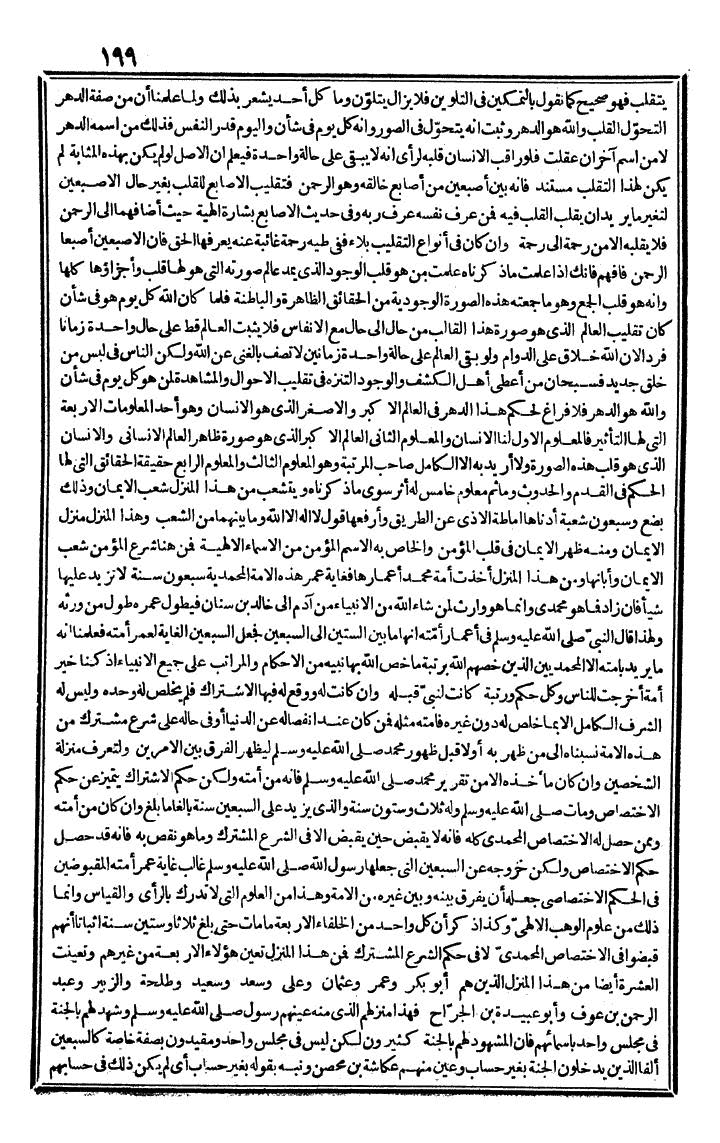 ١٩٩
يتقلب فهو صحيح كما نقول بالتمكين فى التلوين فلا يزال يتلوّن وما كل أحد يشعر بذلك ولما علمنا أن من صفة الدهر
التحوّل القلب والله هو الدهر وثبت انه يتحوّل فى الصور وانه كل يوم فى شأن واليوم قدر النفس فذلك من اسمه الدهر
لا من اسم آخر ان عقلت فلو راقب الانسان قلبه لرأى انه لا يبقى على حالة واحدة فيعلم ان الاصل لو لم يكن بهذه المثابة لم
يكن لهذا التقلب مستند فانه بين أصبعين من أصابع خالقه وهو الرحمن فتقليب الاصابع للقلب بغير حال الاصبعين
لتغير ما يريد ان يقلب القلب فيه فمن عرف نفسه عرف ربه وفى حديث الاصابع بشارة الهية حيث أضافهما الى الرحمن
فلا يقلبه الا من رحمة الى رحمة وان كان فى أنواع التقليب بلاء ففى طيه رحمة غائبة عنه يعرفها الحق فان الاصبعين أصبعا
الرحمن فافهم فانك اذا علمت ما ذكرناه علمت من هو قلب الوجود الذى يمد عالم صورته التى هو لها قلب وأجزاؤها كلها
وانه هو قلب الجمع وهو ما جمعته هذه الصورة الوجودية من الحقائق الظاهرة والباطنة فلما كان الله كل يوم هو فى شأن
كان تقليب العالم الذى هو صورة هذا القالب من حال الى حال مع الانفاس فلا يثبت العالم قط على حال واحدة زمانا
فردا لان الله خلاق على الدوام ولو بقى العالم على حالة واحدة زمانين لا تصف بالغنى عن الله ولكن الناس فى لبس من
خلق جديد فسبحان من أعطى أهل الكشف والوجود التنزه فى تقليب الاحوال والمشاهدة لمن هو كل يوم فى شأن
والله هو الدهر فلا فراغ لحكم هذا الدهر فى العالم الاكبر والاصغر الذى هو الانسان وهو أحد المعلومات الاربعة
التى لها التأثير فالمعلوم الاول لنا الانسان والمعلوم الثانى العالم الاكبر الذى هو صورة ظاهر العالم الانسانى والانسان
الذى هو قلب هذه الصورة ولا أريد به الا الكامل صاحب المرتبة وهو المعلوم الثالث والمعلوم الرابع حقيقة الحقائق التى لها
الحكم فى القدم والحدوث وما ثم معلوم خامس له أثر سوى ما ذكرناه ويتشعب من هذا المنزل شعب الايمان وذلك
بضع وسبعون شعبة أدناها اماطة الاذى عن الطريق وأرفعها قول لا اله الا الله وما بينهما من الشعب وهذا المنزل منزل
الايمان ومنه ظهر الايمان فى قلب المؤمن والخاص به الاسم المؤمن من الاسماء الالهية فمن هنا شرع المؤمن شعب
الايمان وأبانها ومن هذا المنزل أخذت أمة محمد أعمارها فغاية عمر هذه الامة المحمدية سبعون سنة لا تزيد عليها
شيأ فان زاد فما هو محمدى وانما هو وارث لمن شاء الله من الانبياء من آدم الى خالد بن سنان فيطول عمره طول من ورثه
ولهذا قال النبىّ صلى الله عليه وسلم فى أعمار أمّته انها ما بين الستين الى السبعين فجعل السبعين الغاية لعمر أمته فعلمنا انه
ما يريد بامته الا المحمديين الذين خصهم الله برتبة ما خص الله بها نبيه من الاحكام والمراتب على جميع الانبياء اذ كنا خير
أمة أخرجت للناس وكل حكم ورتبة كانت لنبىّ قبله وان كانت له ووقع له فيها الاشتراك فلم يخلص له وحده وليس له
الشرف الكامل الا بما خلص له دون غيره فامته مثله فمن كان عند انفصاله عن الدنيا أو فى حاله على شرع مشترك من
هذه الامة نسبناه الى من ظهر به أولا قبل ظهور محمد صلى الله عليه وسلم ليظهر الفرق بين الامرين ولتعرف منزلة
الشخصين وان كان ما أخذه الامن تقرير محمد صلى الله عليه وسلم فانه من أمته ولكن حكم الاشتراك يتميز عن حكم
الاختصاص ومات صلى الله عليه وسلم وله ثلاث وستون سنة والذى يزيد على السبعين سنة بالغا ما بلغ وان كان من أمته
وممن حصل له الاختصاص المحمدى كله فانه لا يقبض حين يقبض الا فى الشرع المشترك وما هو نقص به فانه قد حصل
حكم الاختصاص ولكن خروجه عن السبعين التى جعلها رسول الله صلى الله عليه وسلم غالب غاية عمر أمته المقبوضين
فى الحكم الاختصاصى جعله أن يفرق بينه وبين غيره من الامة وهذا من العلوم التى لا تدرك بالرأى والقياس وانما
ذلك من علوم الوهب الالهىّ وكذا ذكر أن كل واحد من الخلفاء الاربعة ما مات حتى بلغ ثلاثا وستين سنة اثباتا أنهم
قبضوا فى الاختصاص المحمدىّ لا فى حكم الشرع المشترك فمن هذا المنزل تعين هؤلاء الاربعة من غيرهم وتعينت
العشرة أيضا من هذا المنزل الذين هم أبو بكر وعمر وعثمان وعلى وسعد وسعيد وطلحة والزبير وعبد
الرحمن بن عوف وأبو عبيدة بن الجرّاح فهذا منزلهم الذى منه عينهم رسول صلى الله عليه وسلم وشهد لهم بالجنة
فى مجلس واحد باسمائهم فان المشهود لهم بالجنة كثيرون لكن ليس فى مجلس واحد ومقيدون بصفة خاصة كالسبعين
ألفا الذين يدخلون الجنة بغير حساب وعين منهم عكاشة بن محصن ونبه بقوله بغير حساب أى لم يكن ذلك فى حسابهم